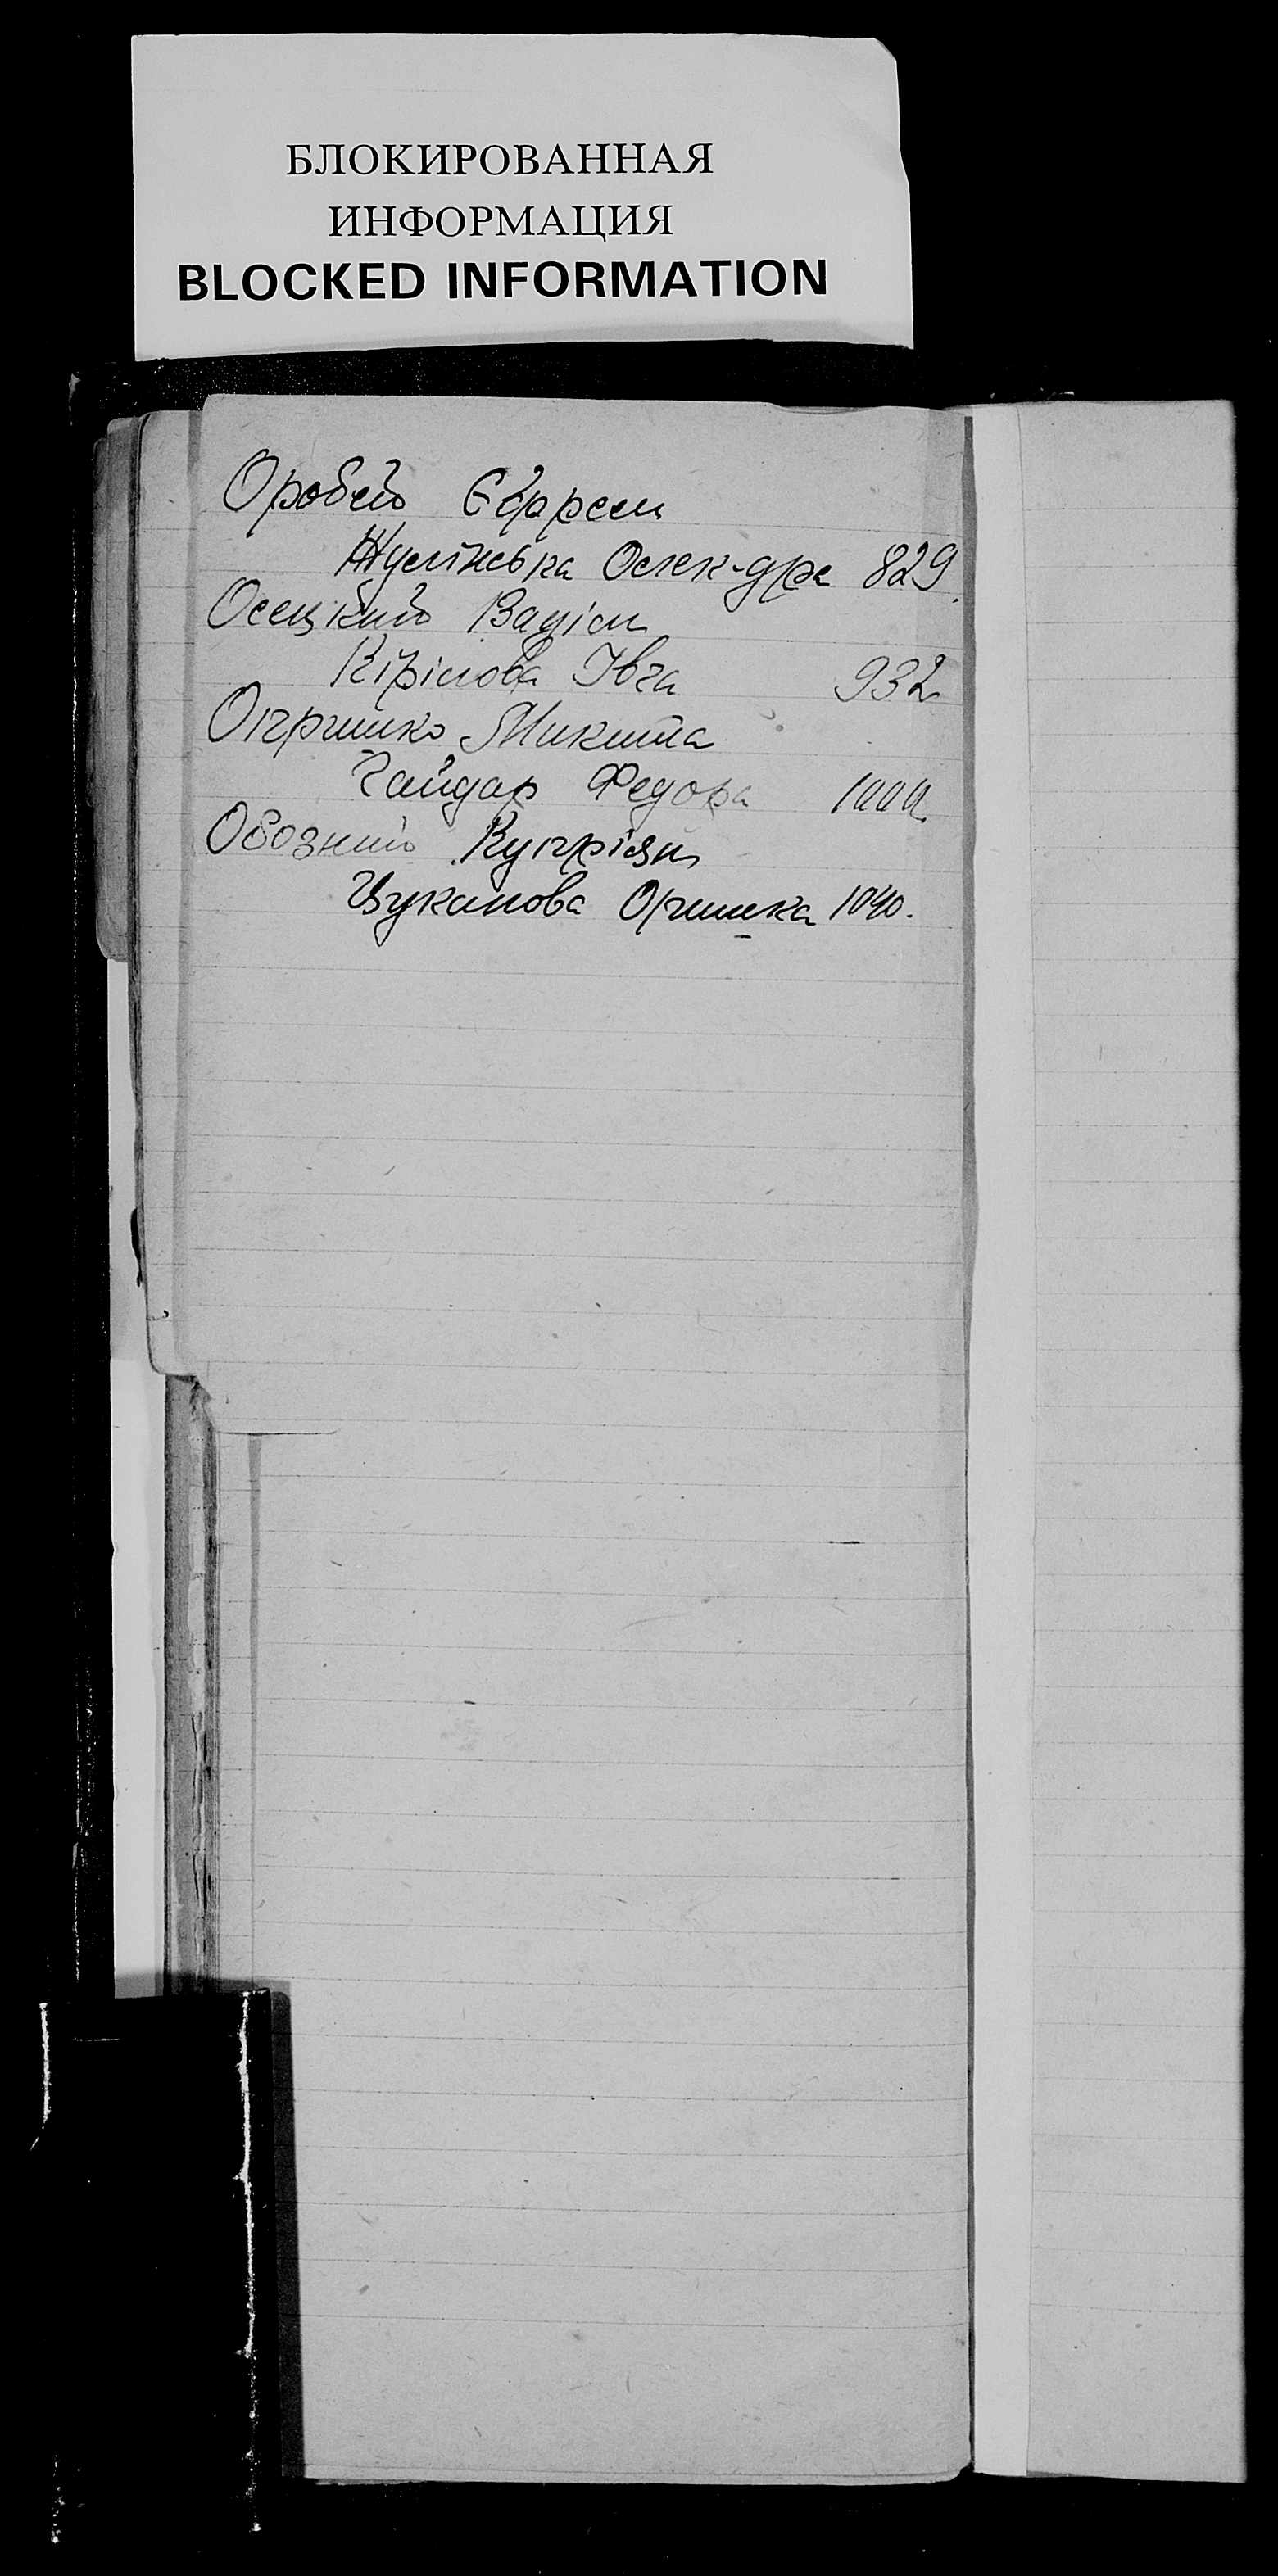 БЛОКИРОВАННАЯ
ИНФОРМАЦИЯ
BLOCKED INFORMATION
Оробей Єфрем
Жулінська Олек-дра 829.
Осецький Вадім
Кірілова Івга 932
Опришко Микита
Гайдар Федора 1000.
Обозний Купріян
Цуканова Оришка 1040.